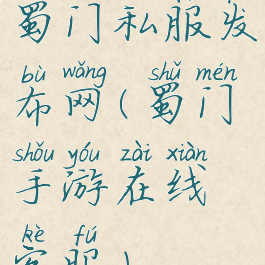 蜀门私服发
bù wǎng shǔ mén
布网(蜀门
shǒu yóu zài xiàn
手游在线
kè fú
客服)